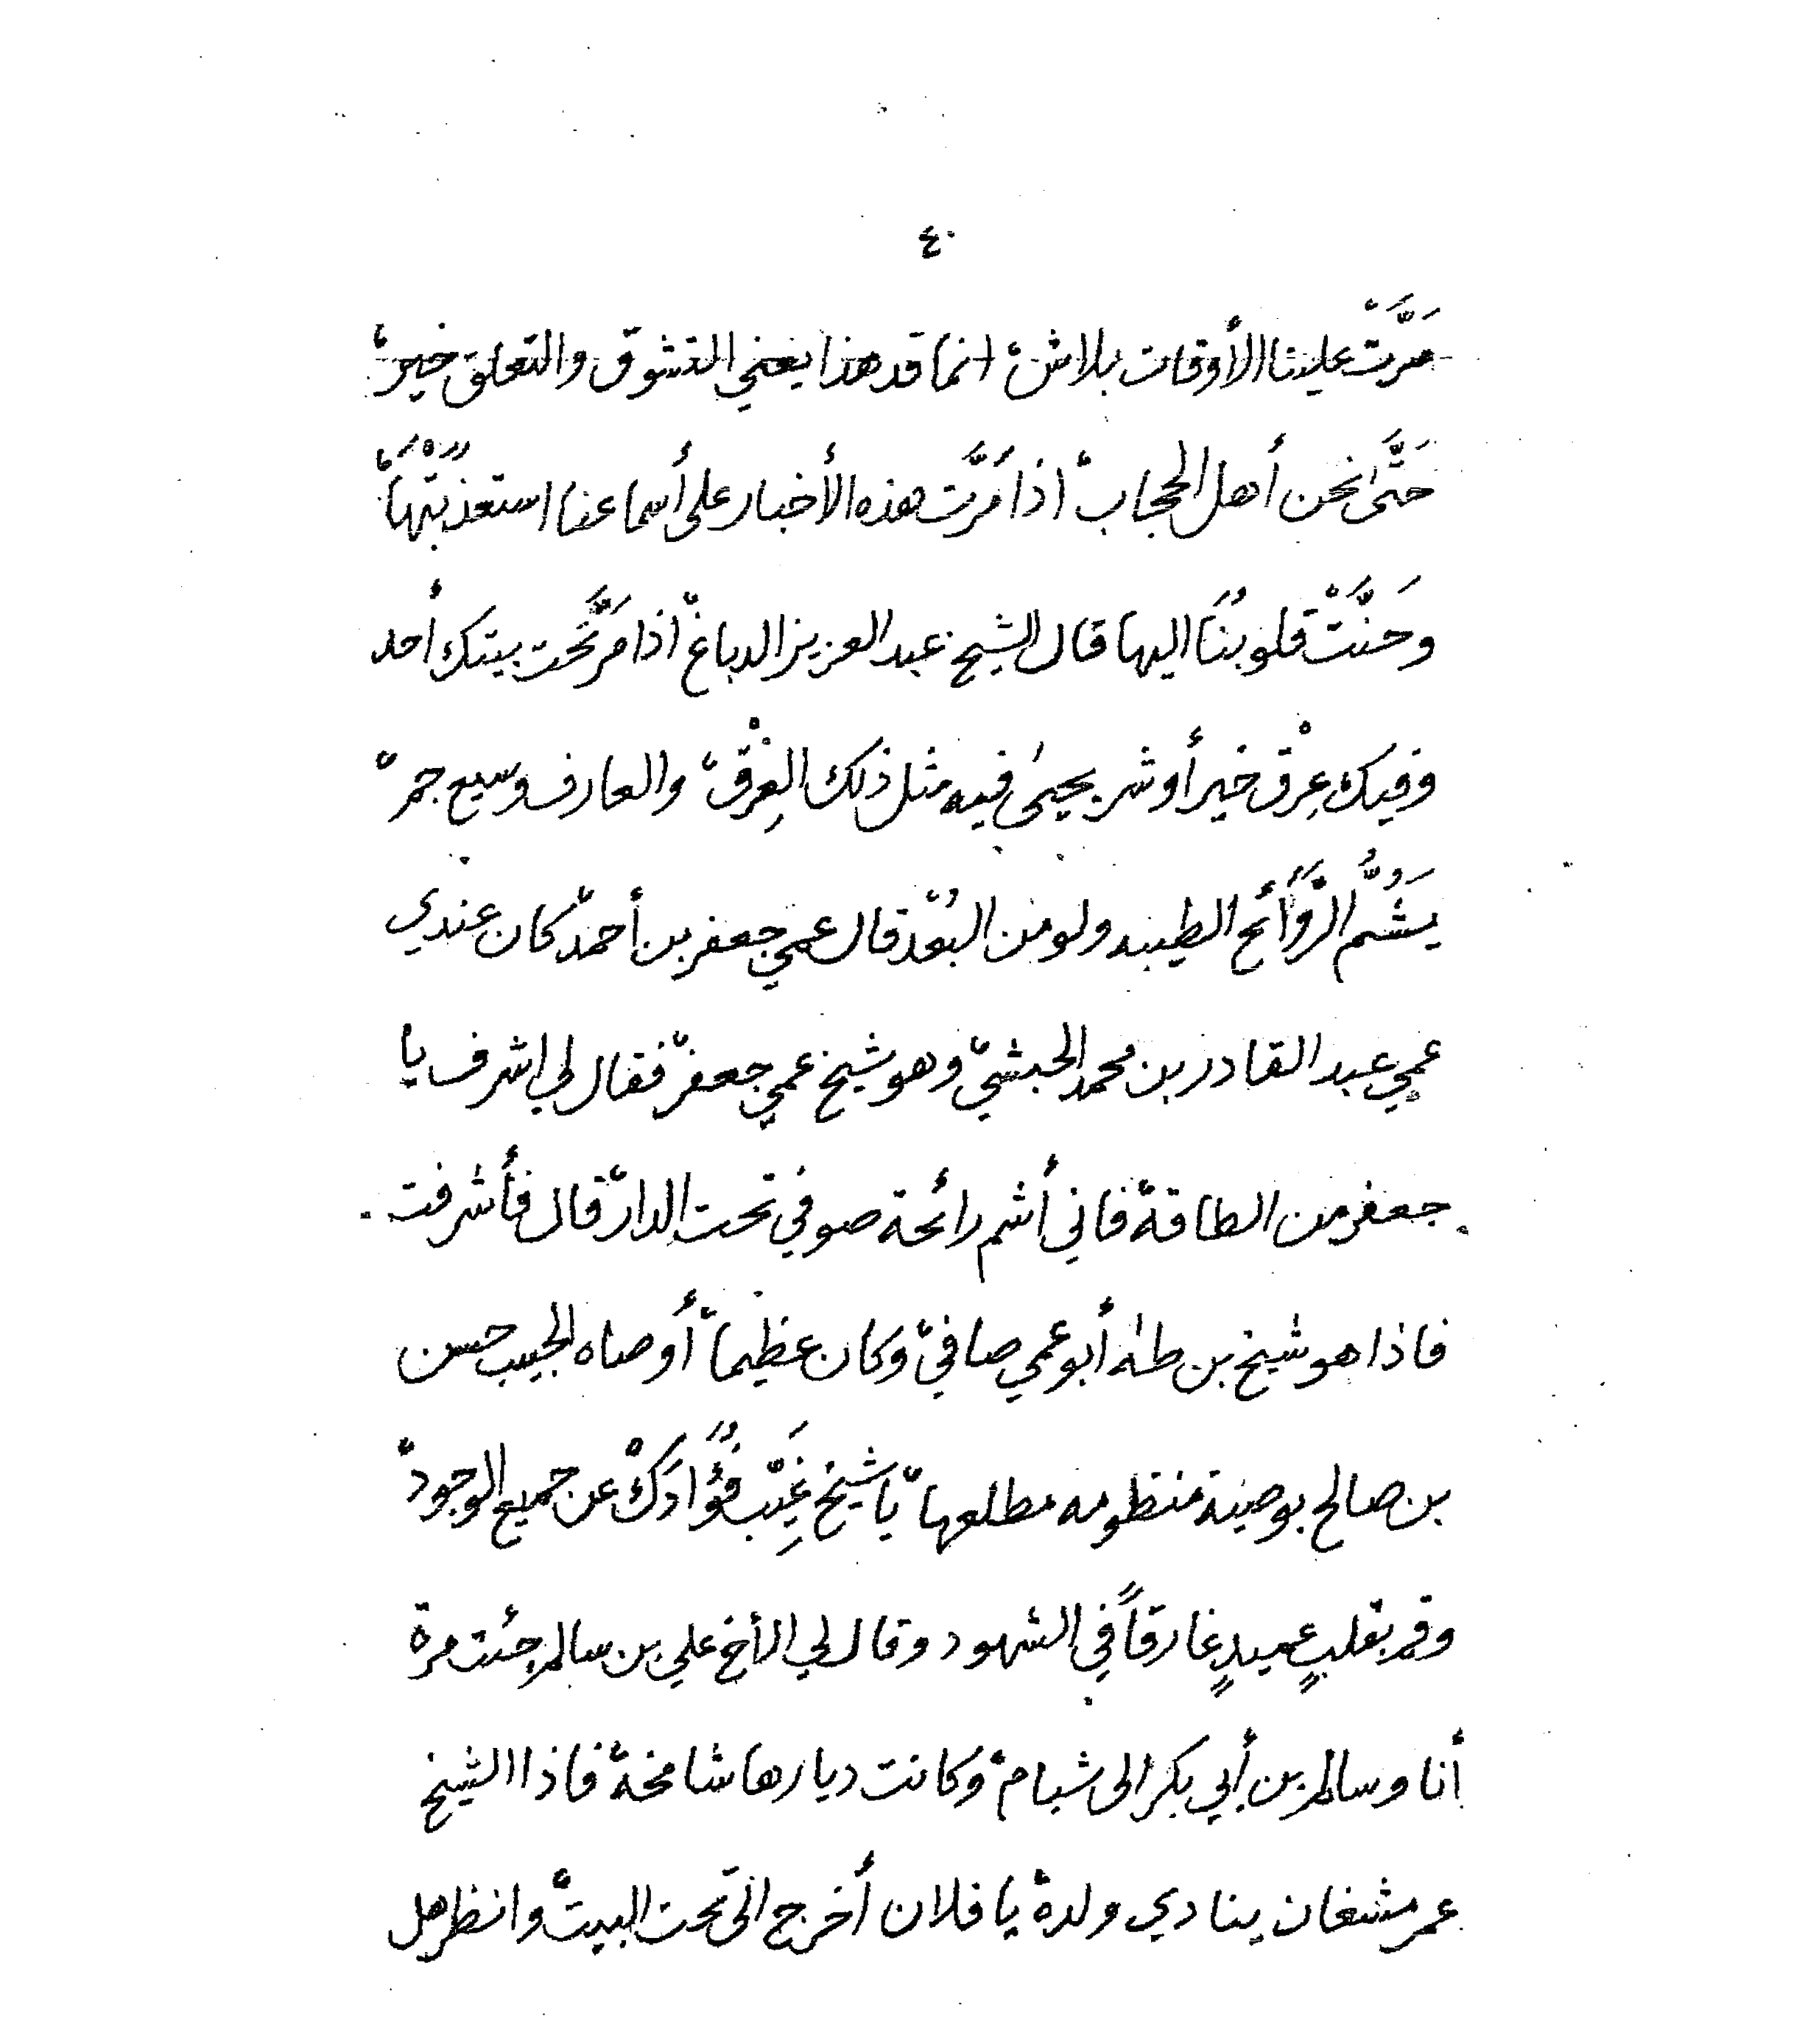 ٤٠
مَرَّتْ علينا الأوقات بلاش، انما قد هذا يعني التشوق والتعلق خير،
حَتَّى نحن أهل الحجاب، اذا مَرَّت هذه الأخبار على أسماعنا استعذَبَتْهَا،
وَحَنَّتْ قلوبُنَا اليها قال الشيخ عبد العزيز الدباغ، اذا مَرَّ تحت بيتك أحد
وفيك عِرْق خير أو شر يحيىٰ فيه مثل ذلك العِرْق، والعارف وسيع جمّ،
يَشُمُّ الرَّوَائح الطيبه ولو من البُعْد، قال عمي جعفر بن أحمد، كان عندي
عمي عبد القادر بن محمد الحبشي، وهو شيخ عمي جعفر، فقال لي اشرف يا
جعفر من الطاقة، فاني أشم رائحة صوفي تحت الدار، قال فأشرفت
فاذا هو شيخ بن طه أبو عمي صافي، وكان عظيماً، أوصاه الحبيب حسن
بن صالح بوصية منظومه مطلعها، يا شيخ غَيِّب فُؤَادَكْ عن جميع الوجود،
وقم بقلبٍ عميدٍ غارقاً في الشهود وقال لي الأخ علي بن سالم جئت مرة
أنا وسالم بن أبي بكر الى شبام، وكانت ديارها شامخة، فاذا الشيخ
عمر مشغان ينادي ولده، يا فلان أخرج الى تحت البيت، وانظر هل